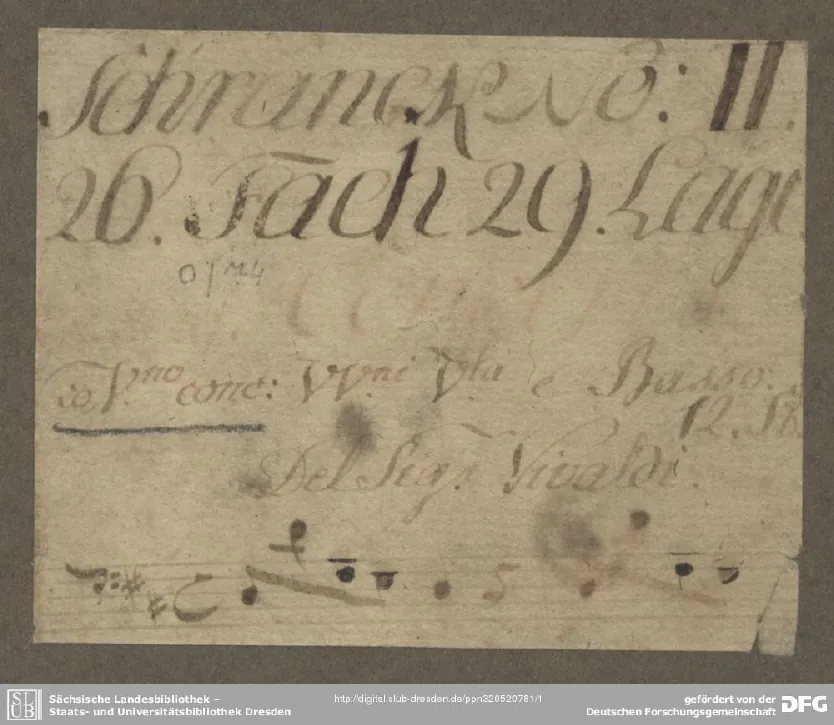 Schranck No: II.
26. Fach 29. Lage
co V.no conc: VV.ni V.la e Basso:
12. St.
Del Sigr. Vivaldi.
SLUB
Sächsische Landesbibliothek –
Staats- und Universitätsbibliothek Dresden
http://digital.slub-dresden.de/ppn320520781/1
gefördert von der
Deutschen Forschungsgemeinschaft
DFG